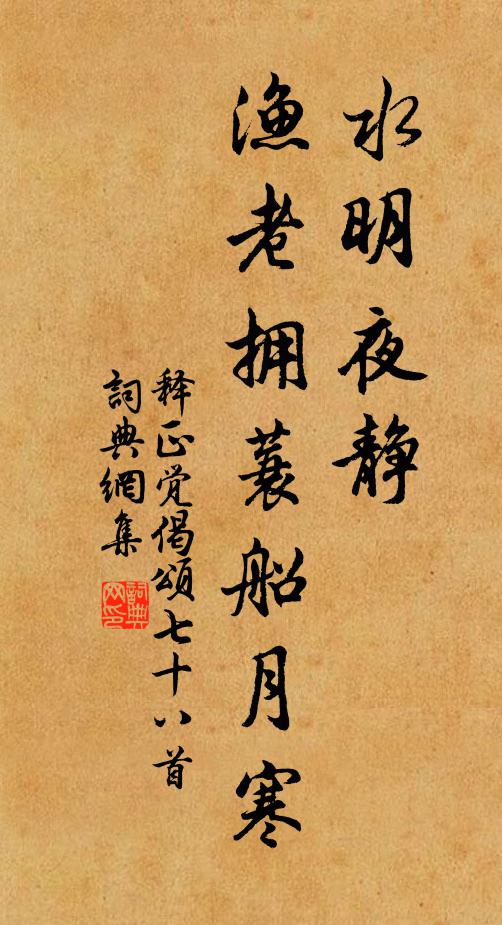 水明夜静
渔老拥蓑船月寒
释正觉偈颂七十八首
詞典網集
詞典網印